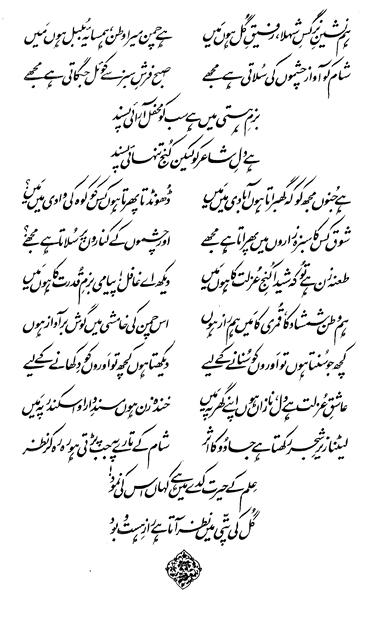 ہم نشینِ نرگسِ شہلا، رفیقِ گُل ہوں میں ہے چمن میرا وطن، ہمسایۂ بُلبل ہوں میں
شام کو آواز چشموں کی سُلاتی ہے مجھے صبح فرشِ سبز سے کوئل جگاتی ہے مجھے
بزمِ ہستی میں ہے سب کو محفل آرائی پسند
ہے دلِ شاعر کو لیکن کُنجِ تنہائی پسند
ہے جُنوں مجھ کو کہ گھبراتا ہوں آبادی میں مَیں ڈھُونڈتا پھرتا ہوں کس کو کوہ کی وادی میں مَیں؟
شوق کس کا سبزہ زاروں میں پھراتا ہے مجھے اور چشموں کے کناروں پر سُلاتا ہے مجھے؟
طعنہ زن ہے تُو کہ شیدا کُنجِ عُزلت کا ہوں مَیں دیکھ اے غافل! پیامی بزمِ قُدرت کا ہوں مَیں
ہم وطن شمشاد کا، قُمری کا مَیں ہم راز ہوں اس چمن کی خامشی میں گوش بر آواز ہوں
کچھ جو سنتا ہوں تو اَوروں کو سُنانے کے لیے دیکھتا ہوں کچھ تو اَوروں کو دکھانے کے لیے
عاشقِ عُزلت ہے دل، نازاں ہوں اپنے گھر پہ مَیں خندہ زن ہوں مسندِ دارا و اسکندر پہ مَیں
لیٹنا زیرِ شجر رکھتا ہے جادُو کا اثر شام کے تارے پہ جب پڑتی ہو رہ رہ کر نظر
عِلم کے حیرت کدے میں ہے کہاں اس کی نمود!
گُل کی پتّی میں نظر آتا ہے رازِ ہست و بود